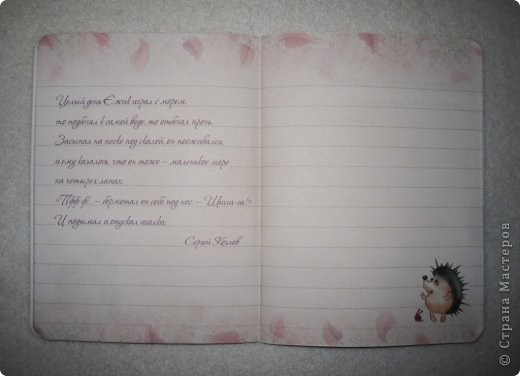 Целый день Ёжик играл с морем:
то подбегал к самой воде, то отбегал прочь.
Засыпал на песке под скалой, он поеживался,
и ему казалось, что он тоже – маленькое море
на четырех лапах.
– бормотал он себе под нос. –
И подымал и опускал иголки.
Сергей Козлов
© Страна Мастеров